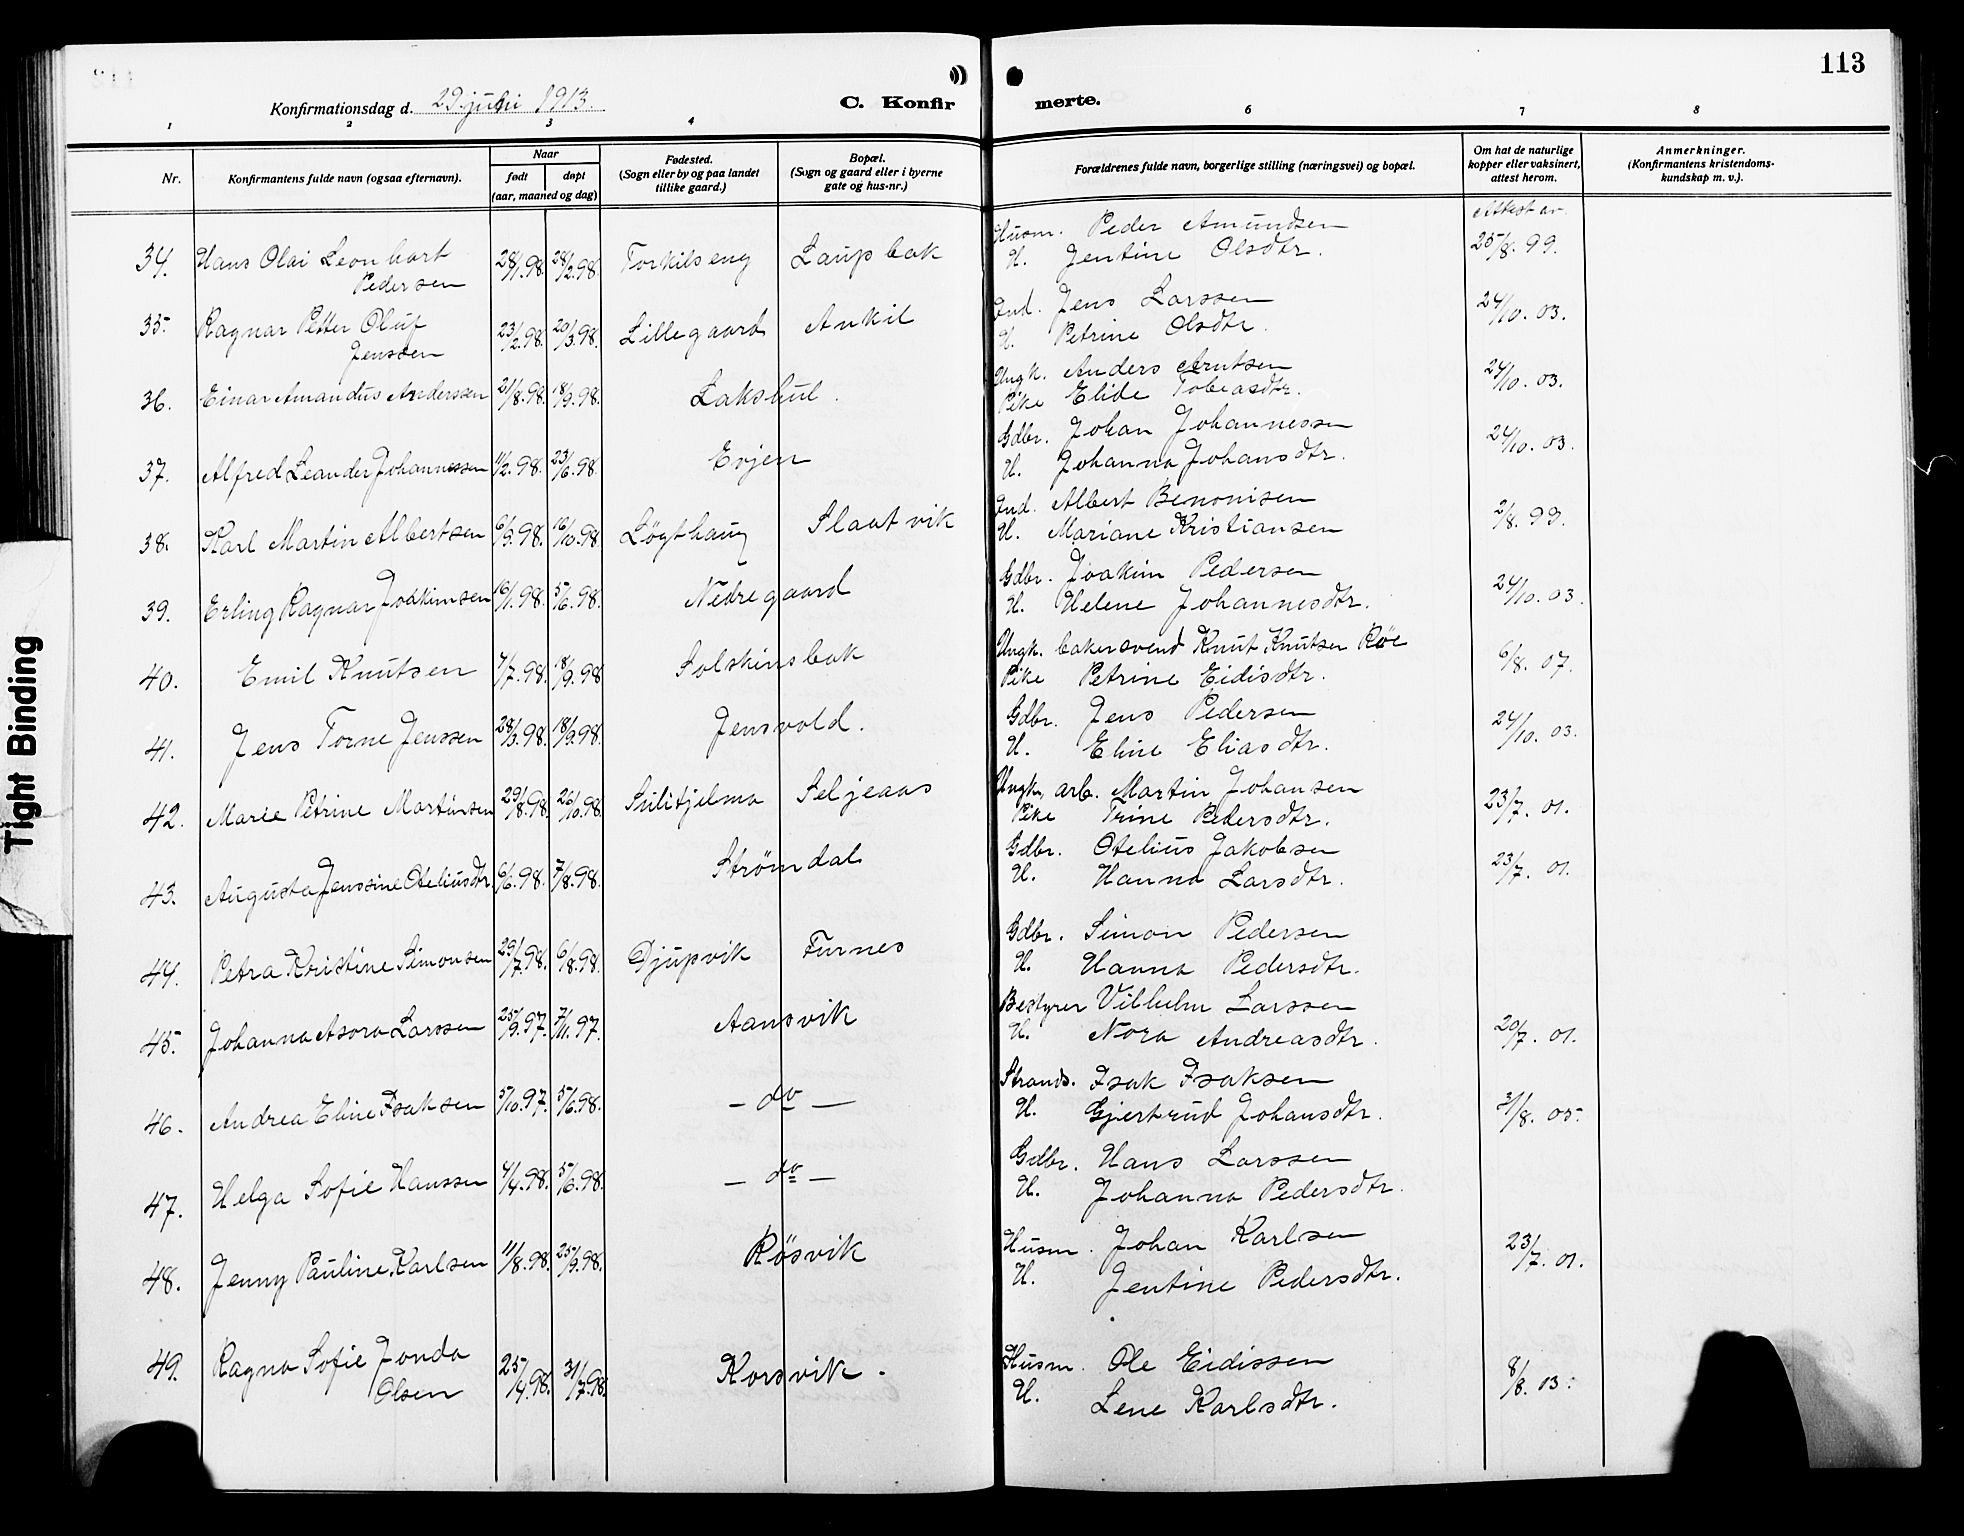 113
Konfirmationsdag d. 29 juni 1913.
C. Konfirmerte.
1 2 3 4 6 7 8
Nr.
Konfirmantens fulde navn (ogsaa efternavn).
Naar
født døpt
(aar, maaned og dag)
Fødested.
(Sogn eller by og paa landet
tillike gaard.)
Bopæl.
(Sogn og gaard eller i byerne
gate og hus-nr.)
Forældrenes fulde navn, borgerlige stilling (næringsvei) og bopæl.
Om hat de naturlige
kopper eller vaksinert,
attest herom.
Anmerkninger.
(Konfirmantens kristendoms-
kundskap m. v.).
Attest av
34. Hans Olai Leonhart 28/1.98. 28/2.98. Torkilseng Laupbak Husm. Peder Amundsen 25/8. 99.
Pedersen H. Jentine Olsdtr.
35. Ragnar Petter Oluf 23/2.98. 20/3.98. Lillegaard Ankil Ind. Jens Larssen 24/10. 03.
Jenssen H. Petrine Olsdtr.
36. Einar Amandus Anderssen 21/8.98. 18/9.98. Lakshul. Ungk. Anders Arntsen 24/10. 03.
Pike Elide Tobeasdtr.
37. Alfred Leander Johannessen 11/2.98. 23/6.98. Evjen Gdbr. Johan Johannessen 24/10. 03.
H. Johanna Johansdtr.
38. Karl Martin Albertsen 6/9.98. 16/10.98 Løgthaug Slaatvik Ind. Albert Benonisen 2/8. 99.
H. Mariane Kristiansen
39. Erling Ragnar Joakimsen 16/1.98. 5/6.98. Nedregaard Gdbr. Joakim Pedersen 24/10. 03.
H. Helene Johannesdtr.
40. Emil Knutsen 4/7.98. 18/9.98 Solskinsbak Ungk. bakersvend Knut Knutsen Røe 6/8. 07.
Pike Petrine Eidisdtr.
41. Jens Torne Jenssen 28/3.98. 18/9.98. Jensvold. Gdbr. Jens Pedersen 24/10. 03.
H. Eline Eliasdtr.
42. Marie Petrine Martinsen 29/8.98. 26/10.98. Sulitjelma Seljeaas Ungk. arb. Martin Johansen 23/7. 01.
Pike Trine Pedersdtr.
43. Augusta Jenssine Oteliusdtr. 6/6.98. 7/8.98. Strømdal Gdbr. Otelius Jakobsen 23/7. 01.
H. Hanna Larsdtr.
44. Petra Kristine Simonsen 29/7.98. 6/8.98. Djupvik Furnes Gdbr. Simon Pedersen
H. Hanna Pedersdtr.
45. Johanna Asora Larssen 25/9.97. 7/11.97. Aansvik Bestyrer Vilhelm Larssen
H. Nora Andreasdtr. 20/7. 01.
46. Andrea Eline Isaksen 5/10.97. 5/6.98. – do – Strands. Isak Isaksen
H. Gjertrud Johansdtr. 31/8. 05.
47. Helga Sofie Hanssen 4/4.98. 5/6.98. – do – Gdbr. Hans Larssen
H. Johanna Pedersdtr.
48. Jenny Pauline Karlsen 11/8.98. 25/9.98. Røsvik Husm. Johan Karlsen 23/7. 01.
H. Jentine Pedersdtr.
49. Ragna Sofie Jonda 25/4.98. 31/7.98. Korsvik. Husm. Ole Eidissen 8/8. 03.
Olsen H. Lene Karlsdtr.
Tight Binding